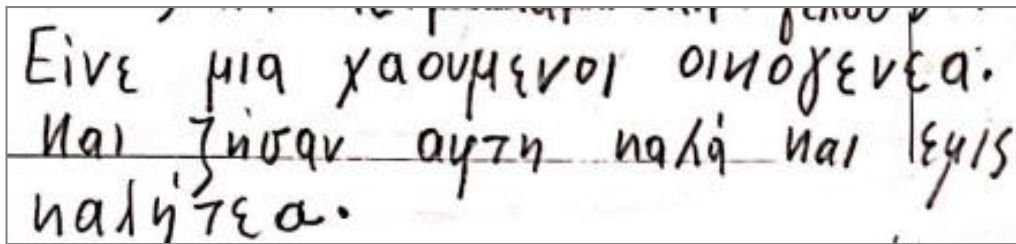 Είνε μια χαουμενοι οικόγενεα.
και ζήσαν αυτη καλά και εμις
καλήτεα.